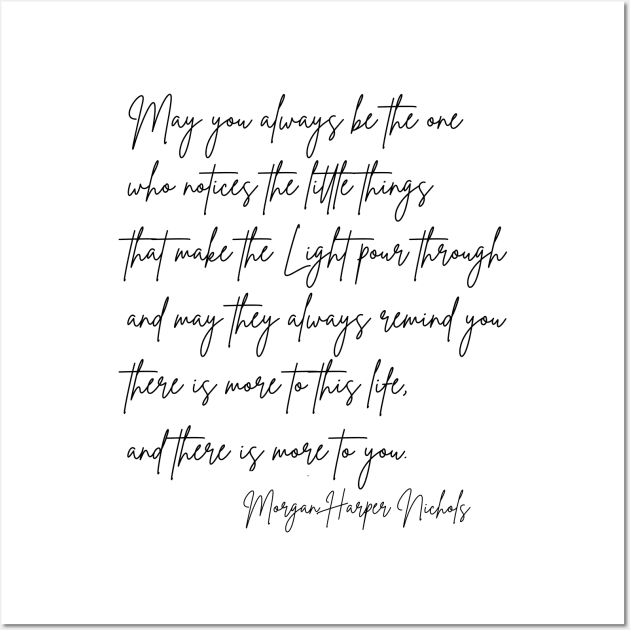 May you always be the one
who notices the little things
that make the Light pour through
and may they always remind you
there is more to this life,
and there is more to you.
Morgan Harper Nichols